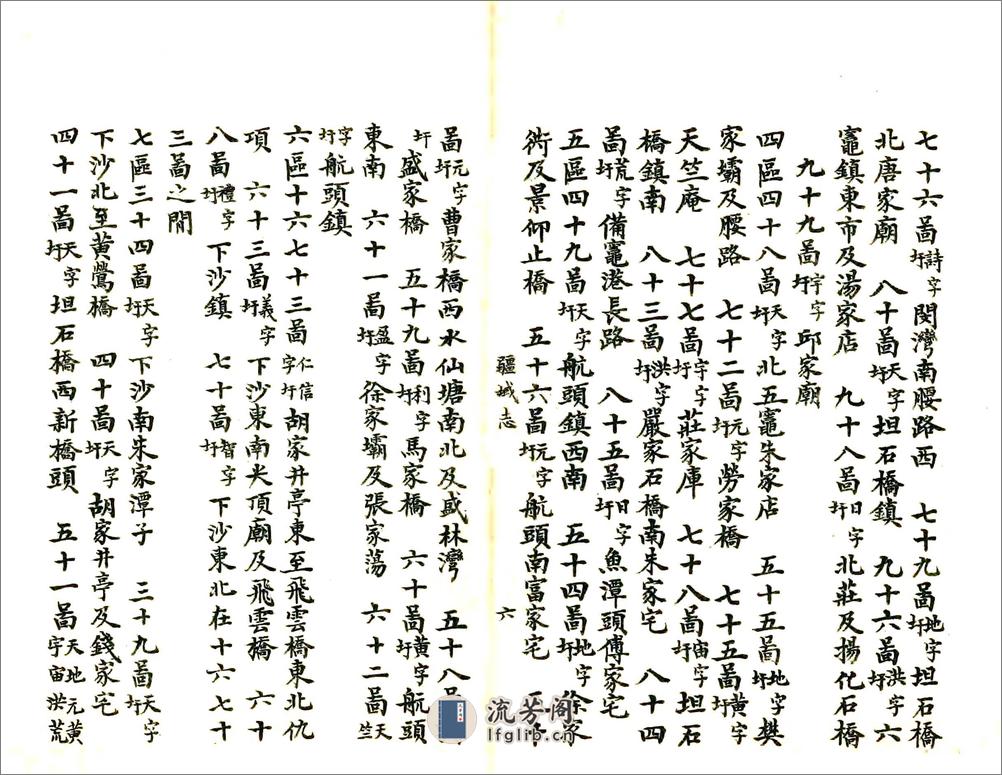 七十六啚詩字圩閔灣南腰路西　七十九啚地字圩坦石橋
北唐家廟　八十啚天字圩坦石橋鎮　九十六啚洪字圩六
竈鎮東市及湯家店　九十八啚日字圩北莊及揚化石橋
九十九啚宇字圩邱家廟
四區四十八啚天字圩北五竈朱家店　五十五啚地字圩樊
家壩及腰路　七十二啚元字圩勞家橋　七十五啚黄字圩
天竺庵　七十七啚宇字圩莊家庫　七十八啚宙字圩坦石
橋鎮南　八十三啚洪字圩嚴家石橋南朱家宅　八十四
啚荒字圩備竈港長路　八十五啚日字圩魚潭頭傅家宅
五區四十九啚天字圩航頭鎮西南　五十四啚地字圩徐家
衖及景仰止橋　五十六啚元字圩航頭南富家宅　五十
疆域志　六
啚元字圩曹家橋西水仙塘南北及盛林灣　五十八
圩盛家橋　五十九啚利字圩馬家橋　六十啚黄字圩航頭
東南　六十一啚盈字圩徐家壩及張家蕩　六十二啚天竺
字圩航頭鎮
六區十六七十三啚仁信字圩胡家井亭東至飛雲橋東北仇
項　六十三啚義字圩下沙東南尖頂廟及飛雲橋　六十
八啚禮字圩下沙鎮　七十啚智字圩下沙東北在十六七十
三啚之閒
七區三十四啚天字圩下沙南朱家潭子　三十九啚天字圩
下沙北至黄鶯橋　四十啚天字圩胡家井亭及錢家宅
四十一啚天字圩坦石橋西新橋頭　五十一啚天地元黄宇宙洪荒
流芳阁
lfglib.cn